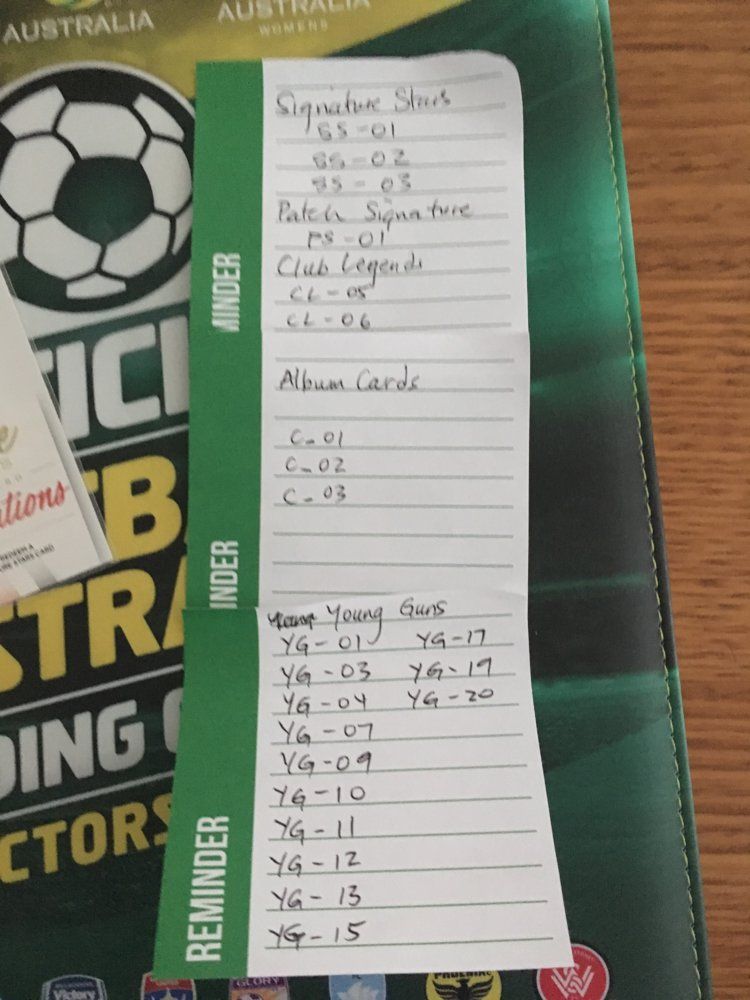 AUSTRALIA
AUSTRALIA
WOMENS
Signature Stars
SS-01
SS-02
SS-03
Patch Signature
PS-01
Club Legends
CL-05
CL-06
Album Cards
C-01
C-02
C-03
Young Guns
YG-01 YG-17
YG-03 YG-19
YG-04 YG-20
YG-07
YG-09
YG-10
YG-11
YG-12
YG-13
YG-15
MINDER
INDER
REMINDER
TICI
TBA
STRA
DING C
CTORS
ations
REDEEM A
STARS CARD
Victory
GLORY
PHOENIX